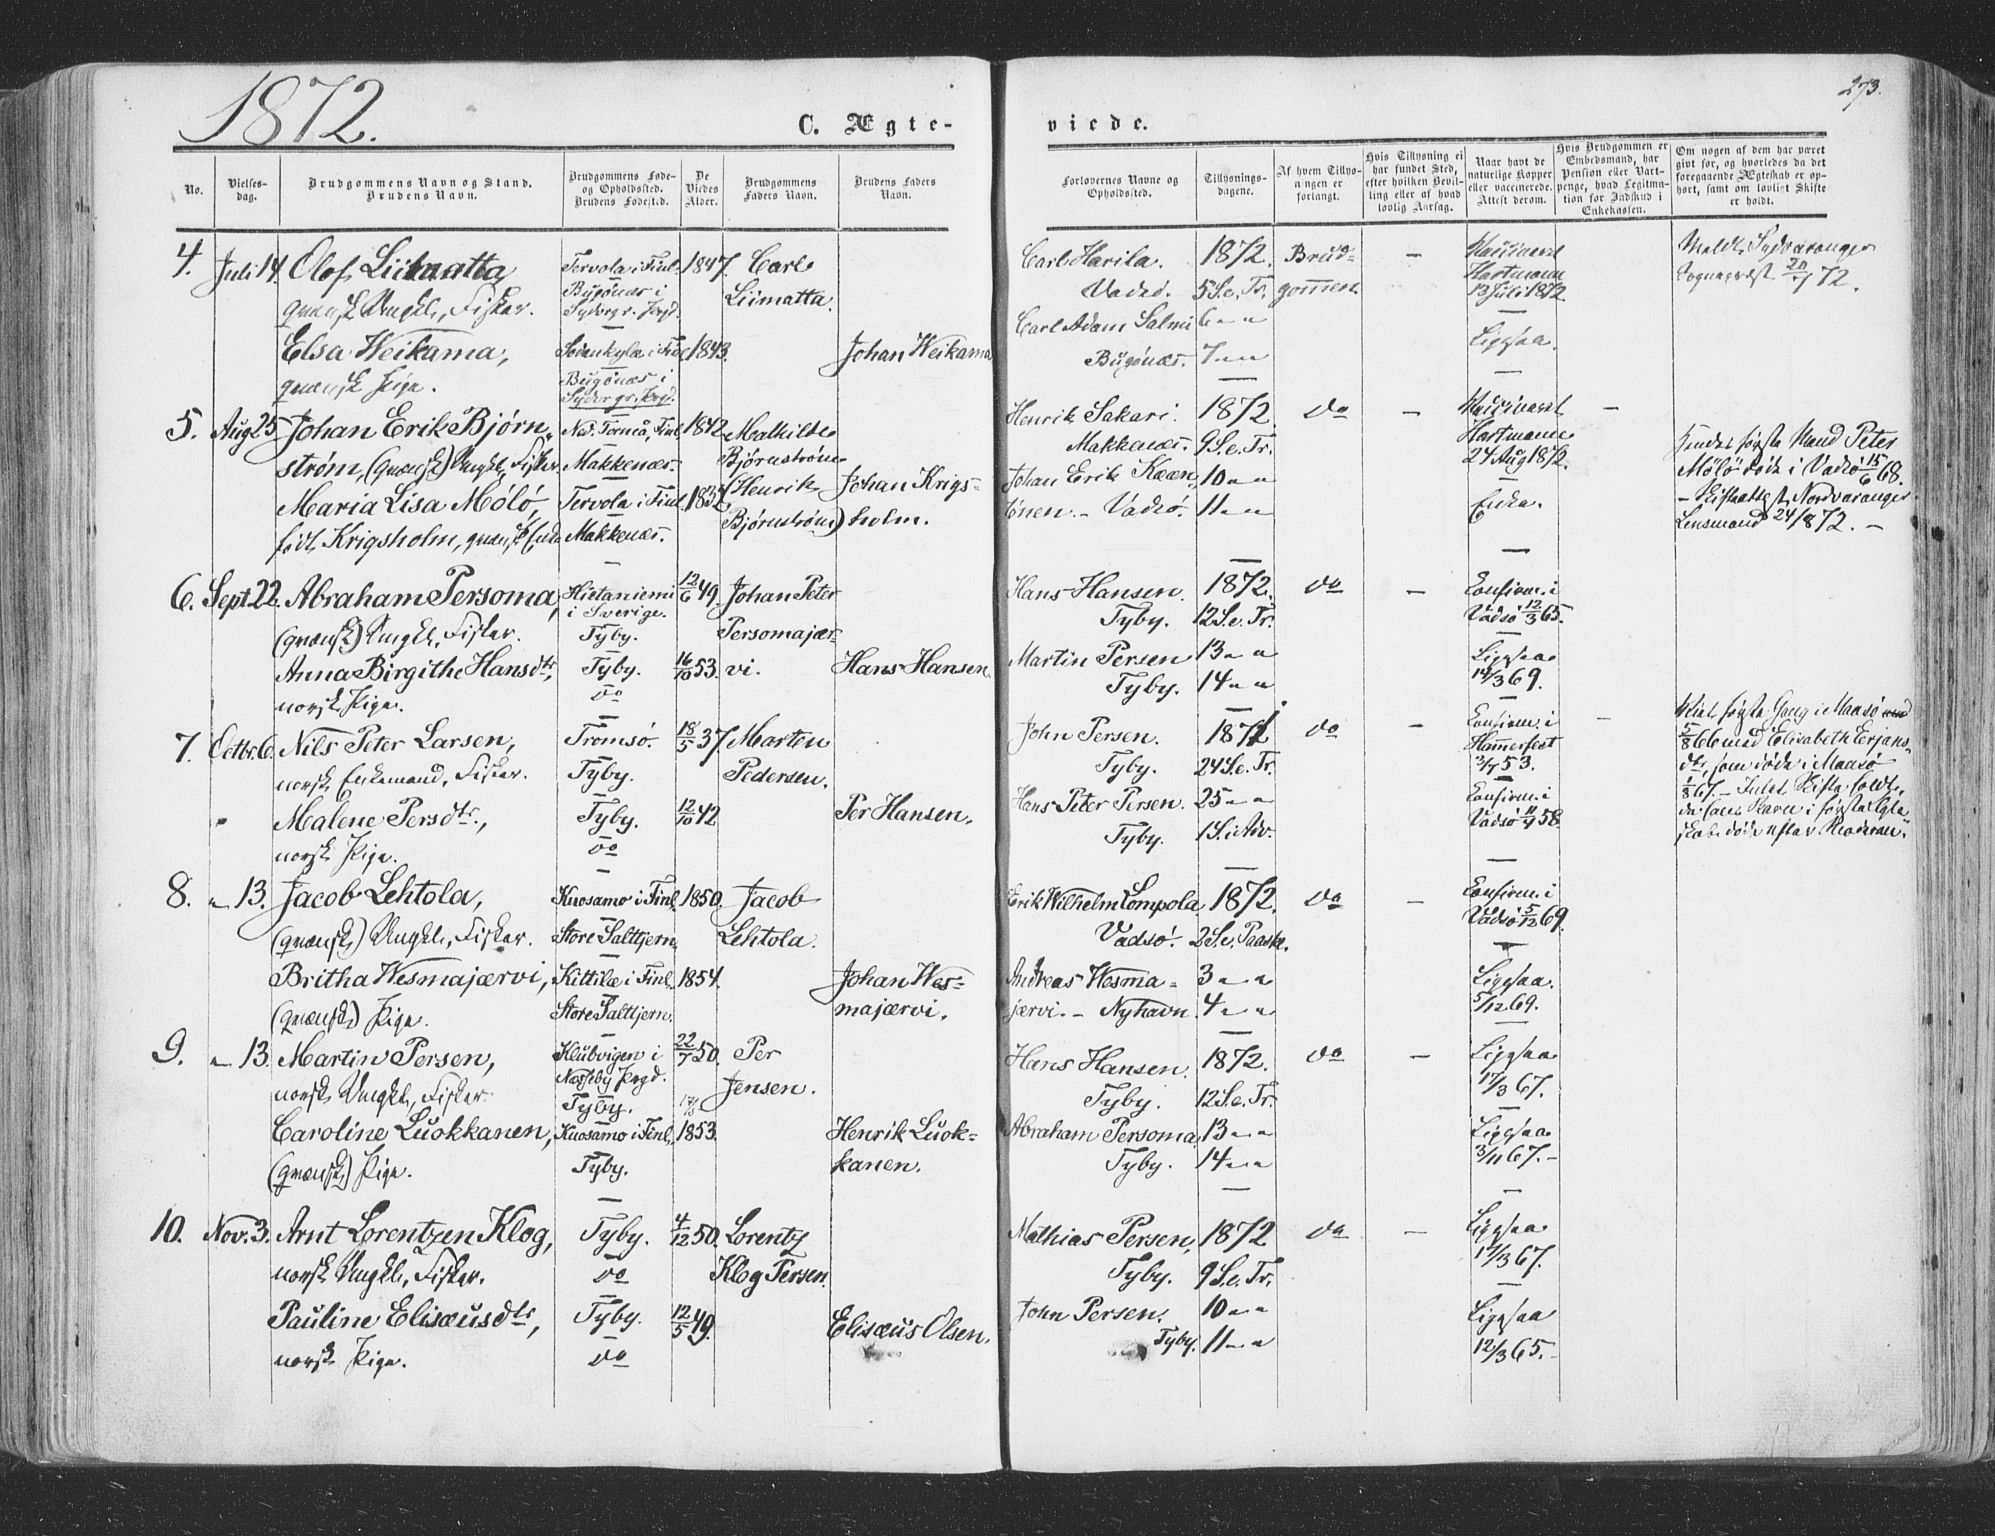 1872.
273.
C. Ægte-
viede.
No.
Vielses-
dag.
Brudgommens Navn og Stand.
Brudens Navn.
Brudgommens Føde-
og Opholdssted.
Brudens Fødested.
De
Viedes
Alder.
Brudgommens
Faders Navn.
Brudens Faders
Navn.
Forlovernes Navne og
Opholdssted.
Tillysnings-
dagene.
Af hvem Tillys-
ningen er
forlangt.
Hvis Tillysning ei
har fundet Sted,
efter hvilken Bevil-
ling eller af hvad
lovlig Aarsag.
Naar havt de
naturlige Kopper
eller vaccinerede.
Attest derom.
Hvis Brudgommen er
Embedsmand, har
Pension eller Vart-
penge, hvad Legitima-
tion for Indskud i
Enkekassen.
Om nogen af dem har været
gift før, og hvorledes da det
foregaaende Ægteskab er op-
hørt, samt om lovligt Skifte
er holdt.
4. Juli 14. Olof Liimatta, Tervola i Finl. 1847. Carl
qvænsk Ungkl., Fisker. Bugönæs i Liimatta.
Sydvgr. Prgd.
Elsa Weikama, Sodankylæ i Finl. 1843. Johan Weikama
qvænsk Pige. Bugönæs i
Sydvgr. Prgd.
Carl Harila. 1872. Brud- — Vaccineret
Vadsö. 5 S. e. Tr. gommen. Hartmann
13 Juli 1872.
Carl Adam Salmi 6 " "
Bugönæs. 7 " " Ligesaa.
Meldt Sydvaranger
Sognepræst 20/7 72.
5. Aug 25 Johan Erik Bjørn- Ned. Torneå, Finl. 1842. Mathilde
strøm, (qvænsk) Ungkl., Fisker Makkenæs. Bjørnstrøm
Maria Lisa Mölö, Tervola i Finl. 1832. (Henrik Johan Krigs-
født Krigsholm, qvænsk Enke Makkenæs. Bjørnstrøm) holm.
Henrik Sakari. 1872. do — Vaccineret —
Makkenæs. 9 S. e. Tr. Hartmann
24 Aug 1872.
Johan Erik Kæen, 10 " "
Vadsö. 11 " " Enke.
Hendes første Mand Peter
Mölö døde i Vadsö 15/6 68.
— Skifteattest Nordvaranger
Lensmand 24/8 72. —
6. Sept 22. Abraham Persoma, Hietaniemi 12/6 49. Johan Peter
(qvænsk) Ungkl., Fisker. i Sverige. Persomajær-
Tyby.
Anna Birgithe Hansdtr., Tyby. 16/10 53. vi. Hans Hansen.
norsk Pige. do
Hans Hansen. 1872. do — Confirm. i
Tyby. 12 S. e. Tr. Vadsö 12/3 65.
Martin Persen 13 " " Ligesaa
Tyby. 14 " " 14/3 69.
7. Octbr. 6. Nils Peter Larsen, Tromsö. 18/5 37 Marten
norsk Enkemand, Fisker. Tyby. Pedersen.
" Malene Persdtr., Tyby. 12/10 42 Per Hansen.
norsk Pige. do
John Persen. 1871 do — Confirm. i —
Tyby. 24 S. e. Tr. Hammerfest
53.
Hans Peter Persen. 25 " " Confirm. i
Tyby. 1 S. i Adv. Vadsö 58.
Viet første Gang i Maasö
5/8 66 med Elisabeth Erjans-
dtr., som døde i Maasö
1/8 67 — Intet Skifte holdt,
da Børn i første Ægte-
skab døde efter Moderen.
8. " 13. Jacob Lehtola, Kuosamo i Finl. 1850. Jacob
(qvænsk) Ungkl., Fisker. Store Saltjern. Lehtola.
Britha Wesmajærvi, Kittilæ i Finl. 1854. Johan Wes-
(qvænsk) Pige. Store Saltjern. majærvi.
Erik Wilhelm Lompola 1872. do — Confirm. i
Vadsö. 2 S. e. Paaske. Vadsö 5/12 69.
Andreas Wesma- 3 " " Ligesaa.
jærvi. — Nyhavn. 4 " " 5/12 69.
9. " 13. Martin Persen, Klubvigen i 22/7 50. Per
norsk Ungkl., Fisker Næsseby Prgd. Jensen.
Tyby.
Caroline Luokkanen, Kuosamo i Finl. 1853. Henrik Luok-
(qvænsk) Pige. Tyby. kanen.
Hans Hansen. 1872. do — Ligesaa
Tyby. 12 S. e. Tr. 17/3 67.
Abraham Persoma. 13 " " Ligesaa
Tyby. 14 " " 3/11 67. —
10. Nov. 3. Arnt Lorentzen Klog, Tyby. 4/12 50. Lorentz
norsk Ungkl., Fisker. do Klog Persen.
Pauline Elisæusdtr., Tyby. 12/5 49. Elisæus Olsen.
norsk Pige. do
Mathias Persen, 1872 do — Ligesaa
Tyby. 9 S. e. Tr. 17/3 67.
John Persen. 10 " " Ligesaa
Tyby. 11 " " 12/3 65. —